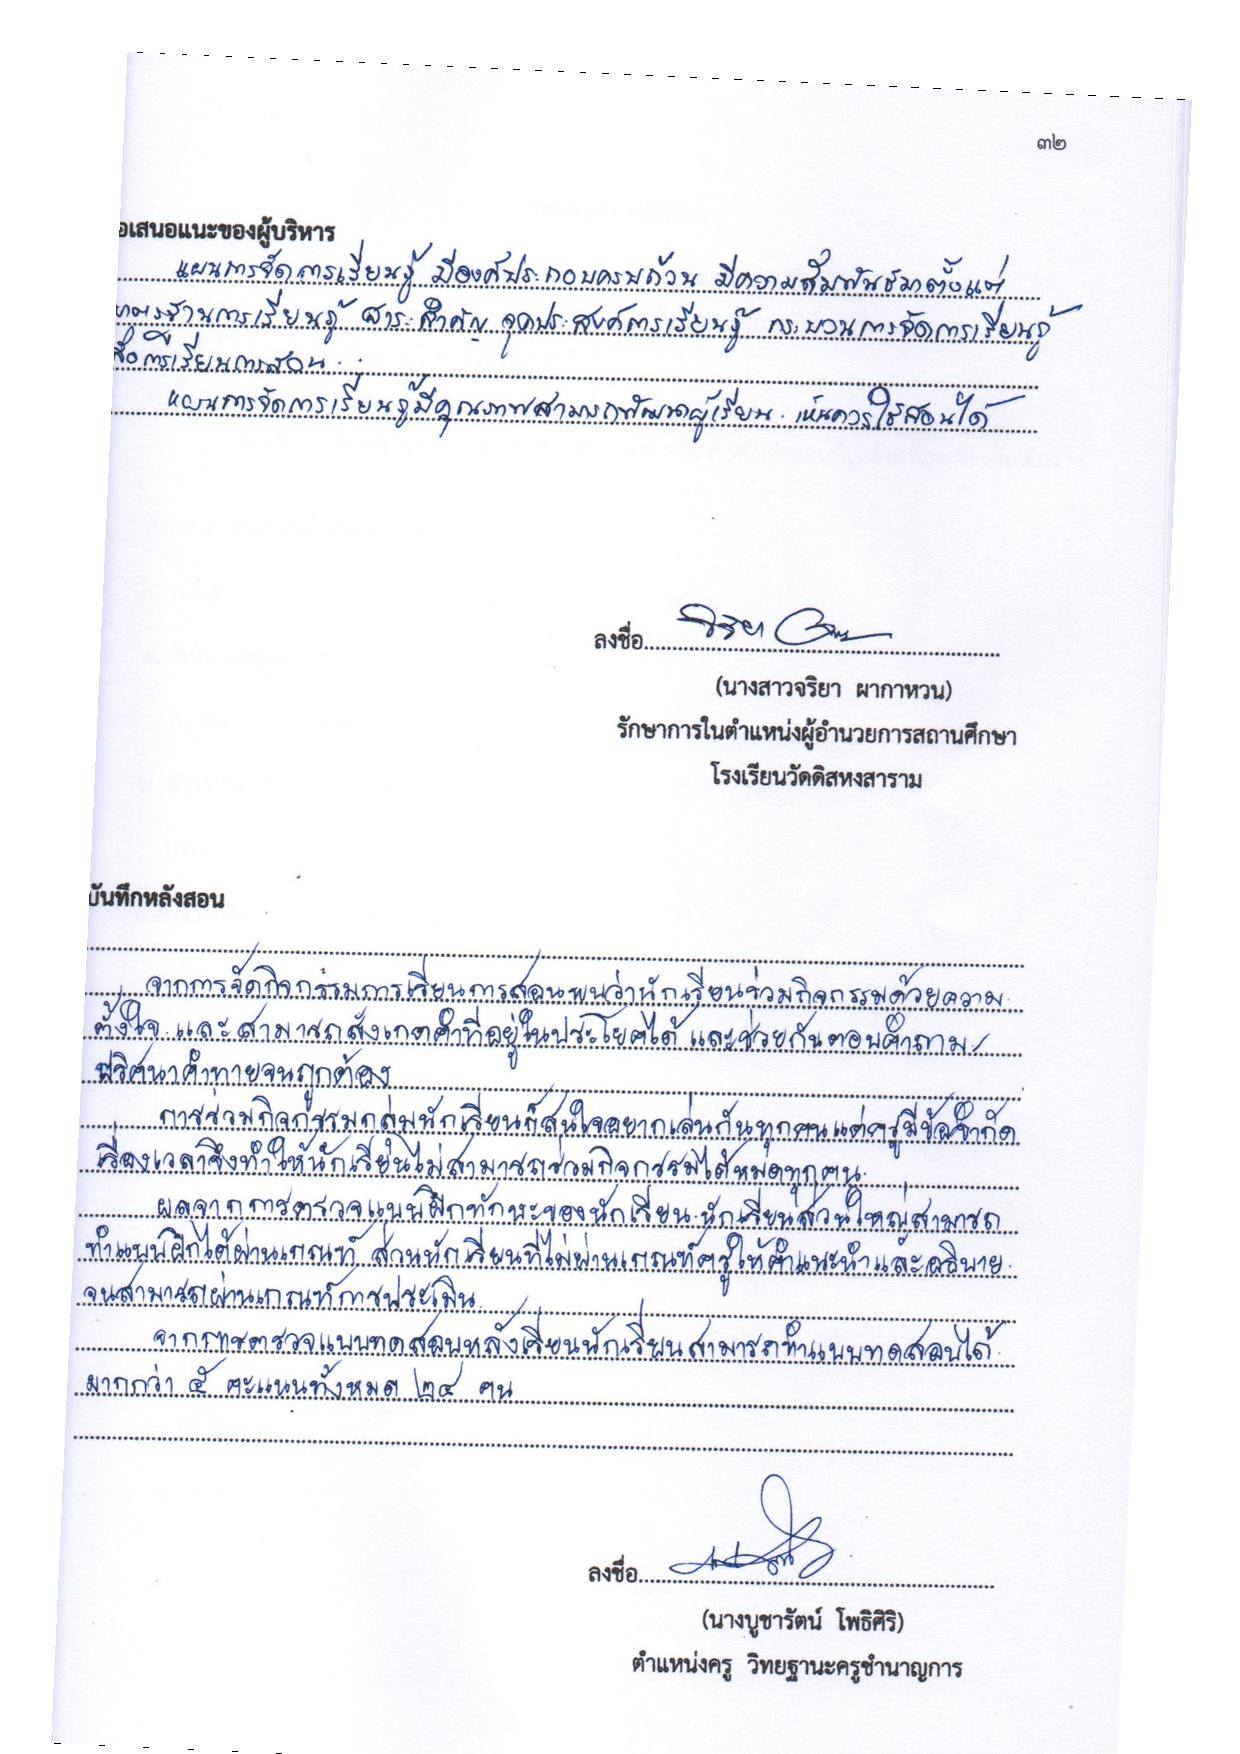 ๓๒
อเสนอแนะของผู้บริหาร
แผนการจัดการเรียนรู้ มีองค์ประกอบครบถ้วน มีความสัมพันธ์มาตั้งแต่
มาตรฐานการเรียนรู้ สาระสำคัญ จุดประสงค์การเรียนรู้ กระบวนการจัดการเรียนรู้
สื่อการเรียนการสอน
แผนการจัดการเรียนรู้มีคุณภาพสามารถพัฒนาผู้เรียน เห็นควรใช้สอนได้
ลงชื่อ
(นางสาวจริยา ผากาหวน)
รักษาการในตำแหน่งผู้อำนวยการสถานศึกษา
โรงเรียนวัดดิสหงสาราม
บันทึกหลังสอน
จากการจัดกิจกรรมการเรียนการสอนพบว่านักเรียนร่วมกิจกรรมด้วยความ
ตั้งใจ และสามารถสังเกตคำที่อยู่ในประโยคได้ และช่วยกันตอบคำถาม/
ปริศนาคำทายจนถูกต้อง
การร่วมกิจกรรมกลุ่มนักเรียนก็สนใจอยากเล่นกันทุกคนแต่ครูมีข้อจำกัด
เรื่องเวลาจึงทำให้นักเรียนไม่สามารถร่วมกิจกรรมได้หมดทุกคน
ผลจากการตรวจแบบฝึกทักษะของนักเรียน นักเรียนส่วนใหญ่สามารถ
ทำแบบฝึกได้ผ่านเกณฑ์ ส่วนนักเรียนที่ไม่ผ่านเกณฑ์ครูให้คำแนะนำและอธิบาย
จนสามารถผ่านเกณฑ์การประเมิน
จากการตรวจแบบทดสอบหลังเรียนนักเรียนสามารถทำแบบทดสอบได้
มากกว่า ๕ คะแนนทั้งหมด ๒๔ คน
ลงชื่อ
(นางบูชารัตน์ โพธิศิริ)
ตำแหน่งครู วิทยฐานะครูชำนาญการ